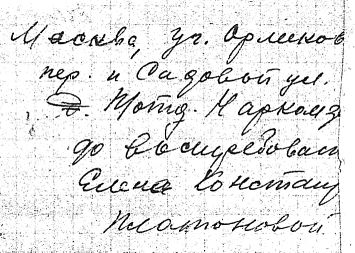 Москва, уг. Орликов
пер. и Садовой ул.
Почтд. Наркомз
до востребован
Елена Констан
Платоновой